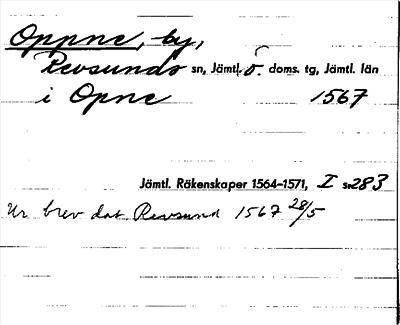 Oppne, by,
Revsunds sn, Jämtl. ö. doms. tg, Jämtl. län
i Opne 1567
Jämtl. Räkenskaper 1564–1571, I s. 283
Ur brev dat Revsund 1567 28/5